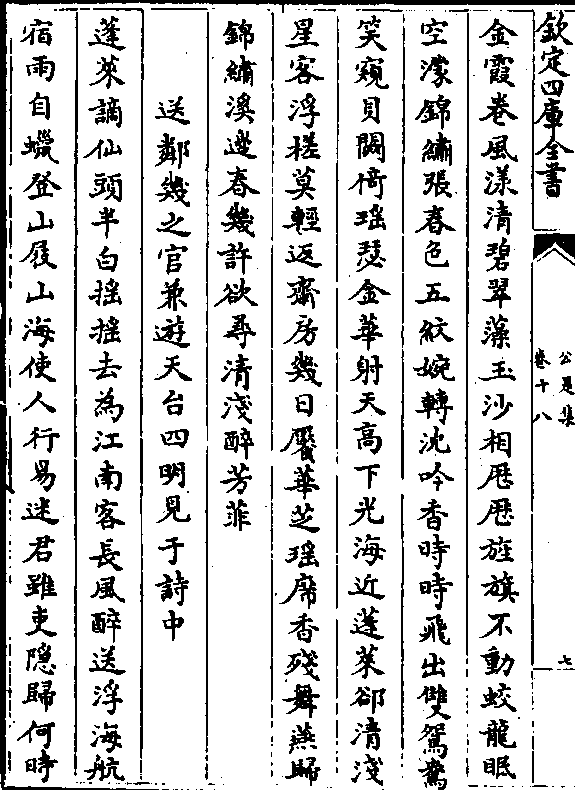 欽定四庫全書
公是集
卷十八
七
金霞卷風漾清碧翠藻玉沙相歴歴旌旗不動蛟龍眠
空濛錦繡張春色五紋婉轉沈吟香時時飛出雙鴛鴦
笑窺貝闕倚瑶瑟金華射天高下光海近蓬萊郤清淺
星客浮槎莫輕返齋房幾日饜華芝瑶席香殘舞燕歸
錦繡溪邊春幾許欲尋清淺醉芳菲
送鄰幾之官兼遊天台四明見于詩中
蓬萊謫仙頭半白揺揺去為江南客長風醉送浮海航
宿雨自蠟登山屐山海使人行易迷君雖吏隠歸何時